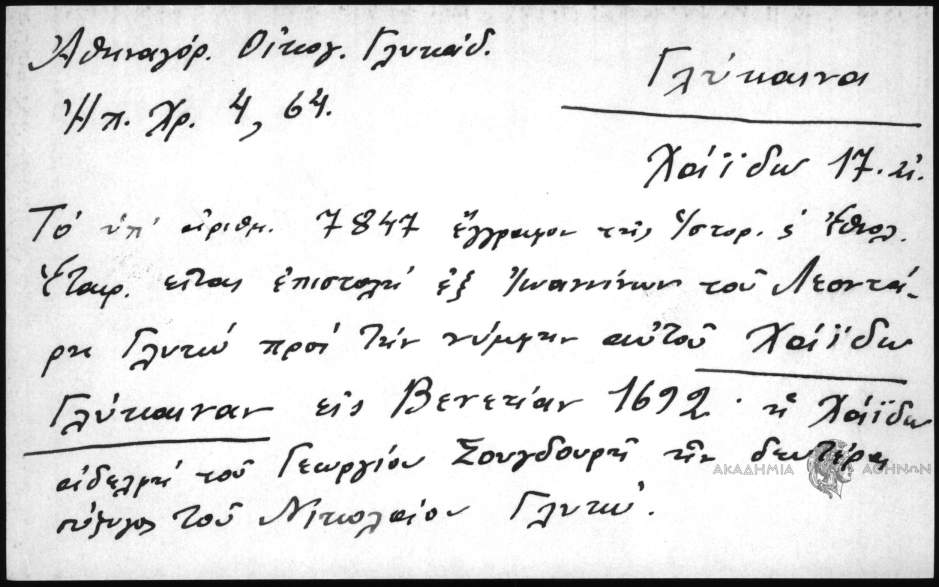 Ἀθηναγόρ. Οἰκογ. Γλυκάδ.
Ἠπ. Χρ. 4, 64.
Γλύκαινα
Χάϊδω 17. αἰ.
Τό ὑπ' ἀριθμ. 7847 ἔγγραφον τῆς Ἱστορ. & Ἐθνολ.
Ἑταιρ. εἶναι ἐπιστολή ἐξ Ἰωαννίνων τοῦ Λεοντά-
ρη Γλυκύ πρός τήν νύμφην αὐτοῦ Χάϊδω
Γλύκαιναν εἰς Βενετίαν 1692. ἡ Χάϊδω
ἀδελφή τοῦ Γεωργίου Σουγδουρῆ ἦν δευτέρα
σύζυγος τοῦ Νικολάου Γλυκύ.
ΑΚΑΔΗΜΙΑ ΑΘΗΝΩΝ